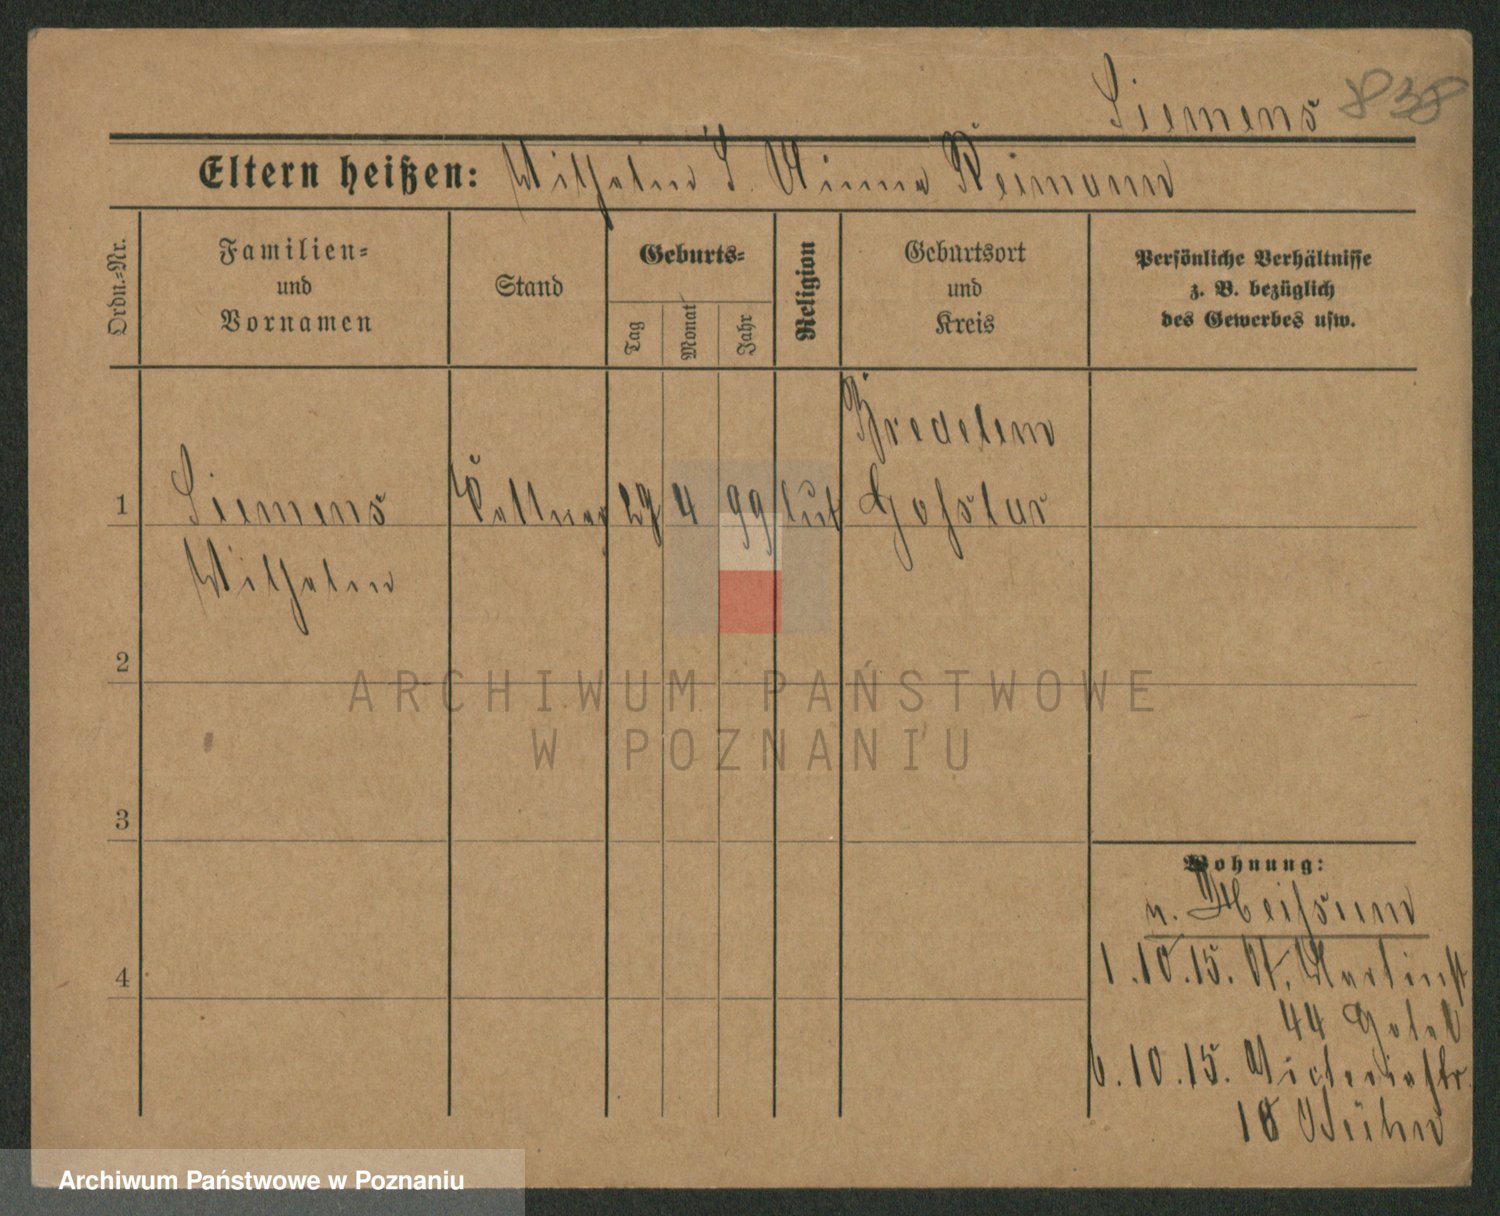 Siemens 838
Eltern heißen: Wilhelm S. Minna Reimann
Ordn.-Nr.
Familien-
und
Vornamen
Stand
Geburts-
Tag
Monat
Jahr
Religion
Geburtsort
und
Kreis
Persönliche Verhältnisse
z. B. bezüglich
des Gewerbes usw.
Bredelem
1 Siemens Kellner 29 4 99 lut Goslar
Wilhelm
2
ARCHIWUM PAŃSTWOWE
W POZNANIU
3
Wohnung:
v.
4
1.10.15. St. Martinst
44
6.10.15. Victoriastr.
18
Archiwum Państwowe w Poznaniu